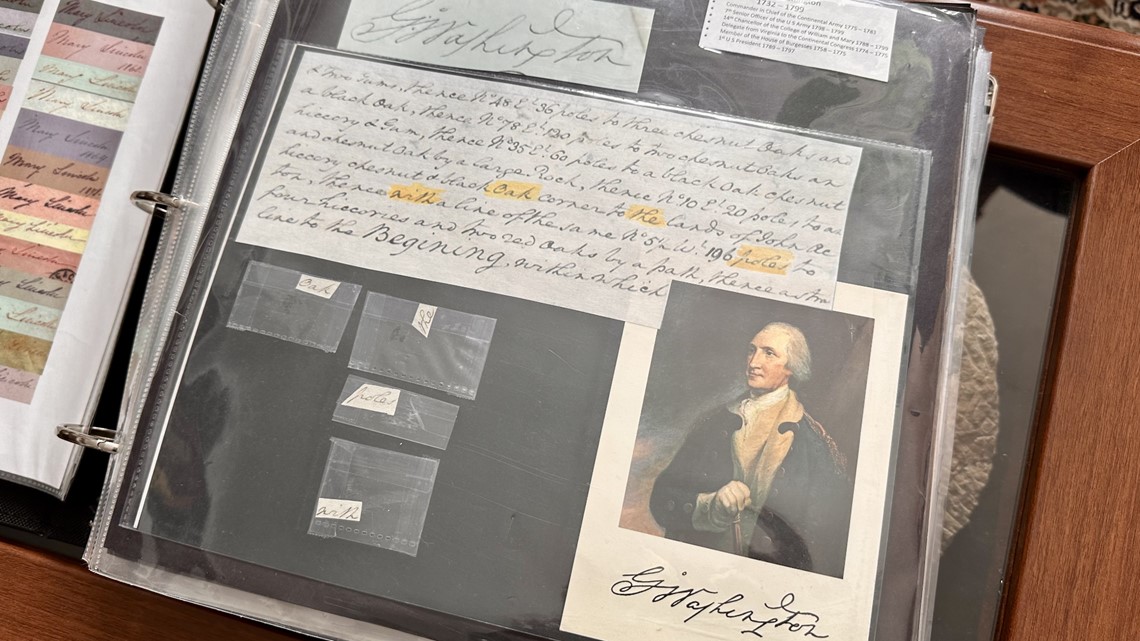 Mary Lincoln
Mary Lincoln
Mary Lincoln
Mary Lincoln
Mary Lincoln
Mary Lincoln
Mary Lincoln
Mary Lincoln
Lincoln
Lincoln
G:Washington
1732 – 1799
Commander in Chief of the Continental Army 1775 – 1783
Senior Officer of the U S Army 1798 – 1799
14th Chancellor of the College of William and Mary 1788 – 1799
Delegate from Virginia to the Continental Congress 1774 – 1775
Member of the House of Burgesses 1758 – 1775
1st U S President 1789 – 1797
& two Gums, thence No. 48 Et. 36 poles to three chesnut Oaks and
a black Oak, thence No. 78 Et. 130 to two chesnut Oaks an
hiccory & Gum, thence No. 35 Et. 60 poles to a black Oak chesnut
and chesnut Oak by a large Rock, thence No. 10 Et. 20 poles to an
hiccory chesnut & black Oak corner to the lands of John Ac
ton, thence with a line of the same No. 51 Wt. 196 poles to
four hiccories and two red Oaks by a path, thence a stra
line to the Begining, within which
Oak
the
poles
with
G:Washington